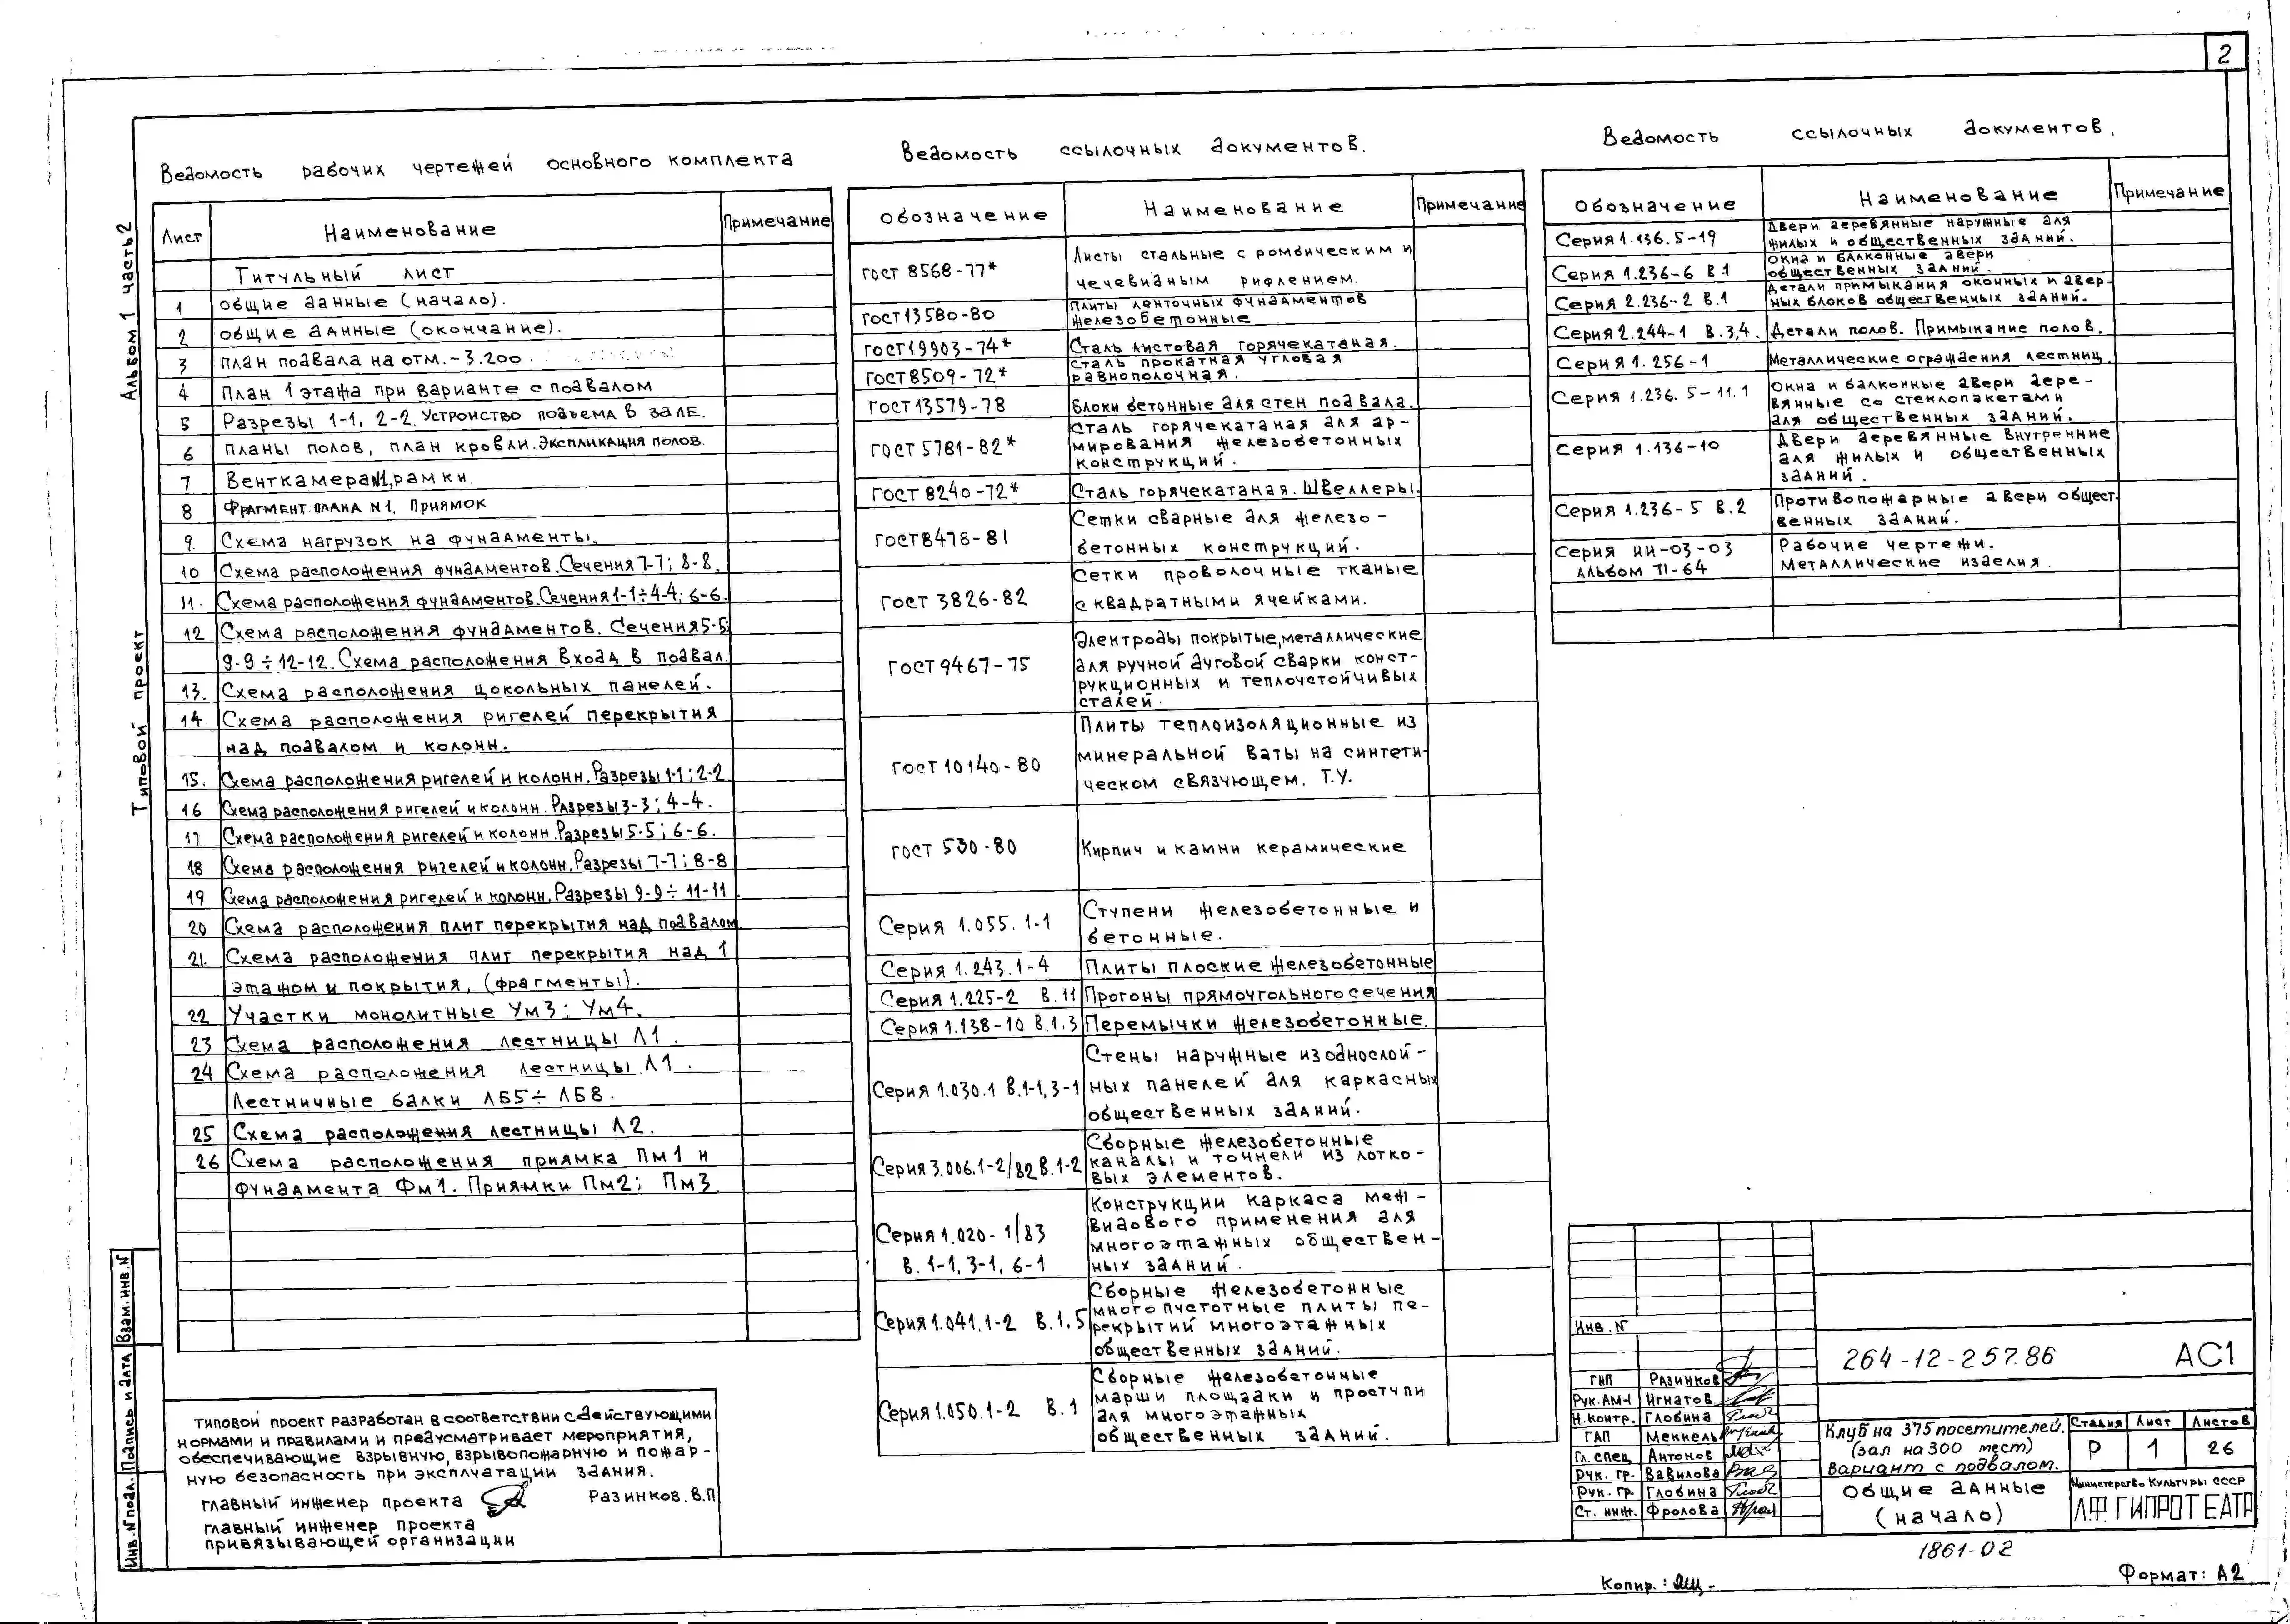 2
Альбом 1 часть 2
Типовой проект
Ведомость рабочих чертежей основного комплекта
Лист Наименование Примечание
Титульный лист
1 Общие данные (начало).
2 Общие данные (окончание).
3 План подвала на отм. -3.200
4 План 1 этажа при варианте с подвалом
5 Разрезы 1-1, 2-2. Устройство подъема в зале.
6 Планы полов, план кровли. Экспликация полов.
7 Венткамера №1, рамки.
8 Фрагмент плана N1. Приямок
9. Схема нагрузок на фундаменты.
10 Схема расположения фундаментов. Сечения 7-7; 8-8.
11. Схема расположения фундаментов. Сечения 1-1÷4-4; 6-6.
12 Схема расположения фундаментов. Сечения 5-5;
9-9÷12-12. Схема расположения вход в подвал.
13. Схема расположения цокольных панелей.
14. Схема расположения ригелей перекрытия
над подвалом и колонн.
15. Схема расположения ригелей и колонн. Разрезы 1-1; 2-2.
16 Схема расположения ригелей и колонн. Разрезы 3-3; 4-4.
17 Схема расположения ригелей и колонн. Разрезы 5-5; 6-6.
18 Схема расположения ригелей и колонн. Разрезы 7-7; 8-8
19 Схема расположения ригелей и колонн. Разрезы 9-9÷11-11
20 Схема расположения плит перекрытия над подвалом
21. Схема расположения плит перекрытия над 1
этажом и покрытия, (фрагменты).
22 Участки монолитные Ум3; Ум4.
23 Схема расположения лестницы Л1.
24 Схема расположения лестницы Л1.
Лестничные балки ЛБ5÷ЛБ8.
25 Схема расположения лестницы Л2.
26 Схема расположения приямка Пм1 и
фундамента Фм1. Приямки Пм2; Пм3.
Типовой проект разработан в соответствии с действующими
нормами и правилами и предусматривает мероприятия,
обеспечивающие взрывную, взрывопожарную и пожар-
ную безопасность при эксплуатации здания.
главный инженер проекта Разинков.В.П
главный инженер проекта
привязывающей организации
Взам.инв.N
Подпись и дата
Инв.N подл.
Ведомость ссылочных документов.
Обозначение Наименование Примечание
ГОСТ 8568-77* Листы стальные с ромбическим и
чечевидным рифлением.
ГОСТ 13580-80 Плиты ленточных фундаментов
железобетонные
ГОСТ 19903-74* Сталь листовая горячекатаная.
ГОСТ 8509-72* Сталь прокатная угловая
равнополочная.
ГОСТ 13579-78 Блоки бетонные для стен подвала.
ГОСТ 5781-82* Сталь горячекатаная для ар-
мирования железобетонных
конструкций.
ГОСТ 8240-72* Сталь горячекатаная. Швеллеры.
ГОСТ 8478-81 Сетки сварные для железо-
бетонных конструкций.
ГОСТ 3826-82 Сетки проволочные тканые
с квадратными ячейками.
ГОСТ 9467-75 Электроды покрытые, металлические
для ручной дуговой сварки конст-
рукционных и теплоустойчивых
сталей.
ГОСТ 10140-80 Плиты теплоизоляционные из
минеральной ваты на синтети-
ческом связующем. Т.У.
ГОСТ 530-80 Кирпич и камни керамические
Серия 1.055.1-1 Ступени железобетонные и
бетонные.
Серия 1.243.1-4 Плиты плоские железобетонные
Серия 1.225-2 В.11 Прогоны прямоугольного сечения
Серия 1.138-10 В.1.3 Перемычки железобетонные.
Серия 1.030.1 В.1-1, 3-1 Стены наружные из однослой-
ных панелей для каркасных
общественных зданий.
Серия 3.006.1-2/82 В.1-2 Сборные железобетонные
каналы и тоннели из лотко-
вых элементов.
Серия 1.020-1/83 Конструкции каркаса меж-
видового применения для
многоэтажных обществен-
В. 1-1, 3-1, 6-1 ных зданий.
Серия 1.041.1-2 В.1.5 Сборные железобетонные
многопустотные плиты пе-
рекрытий многоэтажных
общественных зданий.
Серия 1.050.1-2 В.1 Сборные железобетонные
марши площадки и проступи
для многоэтажных
общественных зданий.
Ведомость ссылочных документов.
Обозначение Наименование Примечание
Серия 1.136.5-19 Двери деревянные наружные для
жилых и общественных зданий.
Серия 1.236-6 В.1 Окна и балконные двери
общественных зданий.
Серия 2.236-2 В.1 Детали примыкания оконных и двер-
ных блоков общественных зданий.
Серия 2.244-1 В.3,4. Детали полов. Примыкание полов.
Серия 1.256-1 Металлические ограждения лестниц.
Серия 1.236.5-11.1 Окна и балконные двери дере-
вянные со стеклопакетами
для общественных зданий.
Серия 1.136-10 Двери деревянные внутренние
для жилых и общественных
зданий.
Серия 1.236-5 В.2 Противопожарные двери общест-
венных зданий.
Серия ИИ-03-03 Рабочие чертежи.
Альбом 71-64 Металлические изделия.
Инв.N
264-12-257.86 АС1
ГИП Разинков
Рук.АМ-1 Игнатов
Н.контр. Глобина
ГАП Меккель
Гл.спец Антонов
Рук. гр. Вавилова
Рук. гр. Глобина
Ст. инж. Фролова
Клуб на 375 посетителей.
(зал на 300 мест)
вариант с подвалом.
Стадия Лист Листов
Р 1 26
Общие данные
(начало)
Министерство Культуры СССР
Л.Ф.ГИПРОТЕАТР
1861-02
Копир.:
Формат: А2